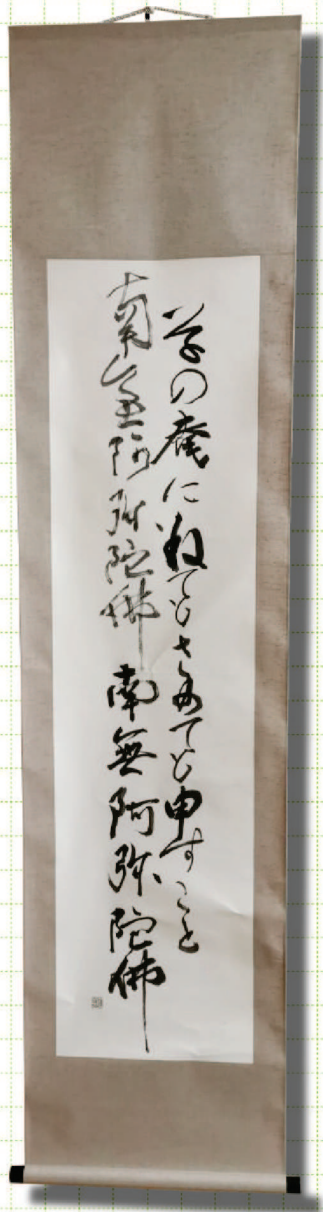 草の庵に寝てもさめても申すこと
南無阿弥陀佛 南無阿弥陀佛